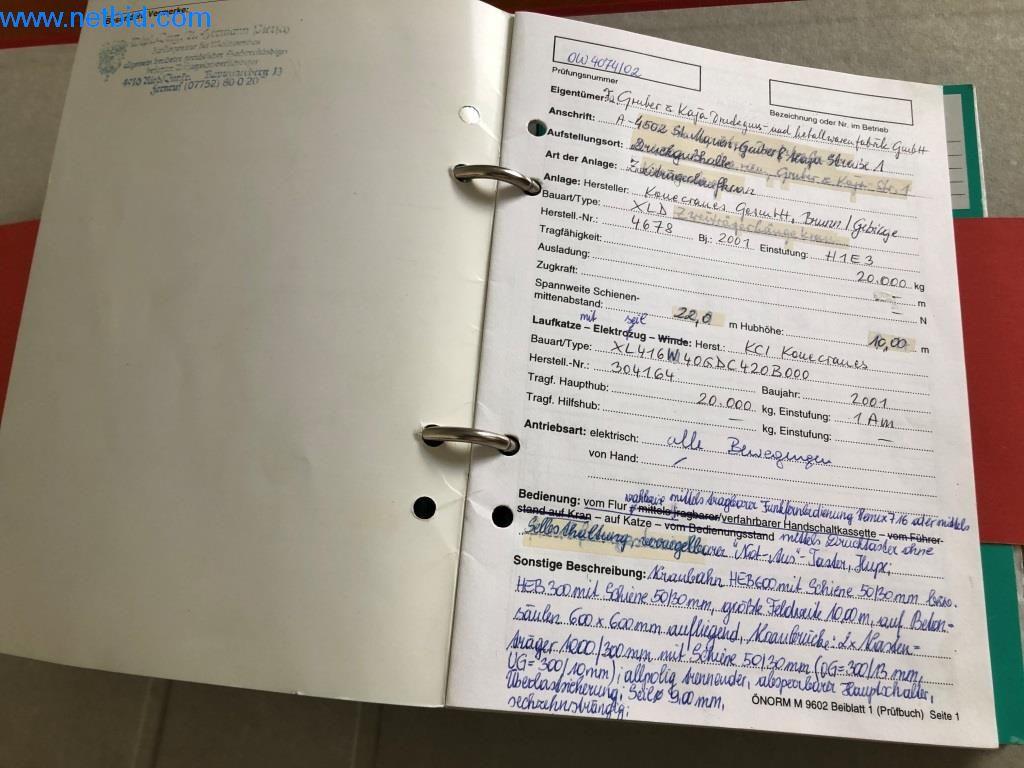 www.netbid.com
Vermerke:
4910 Ried/Innkr. Rennerberg 13
Fernruf (07752) 80 0 20
OW4074/02
Prüfungsnummer
Bezeichnung oder Nr. im Betrieb
Eigentümer: Fa. Gruber & Kaja Druckguss- und Metallwarenfabrik GmbH
Anschrift: A-4502 Gruber & Kaja Straße 1
Aufstellungsort: Druckgußhalle Gruber & Kaja-Str. 1
Art der Anlage: Zweiträgerlaufkran
Anlage: Hersteller: Konecranes Ges.m.b.H., Brunn / Gebirge
Bauart/Type: XLD
Herstell.-Nr.: 4678 Bj.: 2001 Einstufung: H1E3
Tragfähigkeit: 20.000 kg
Ausladung: – m
Zugkraft: N
Spannweite Schienen-
mittenabstand: 22,0 m Hubhöhe: 10,00 m
mit seil
Laufkatze – Elektrozug – Winde: Herst.: KCI Konecranes
Bauart/Type: XL416W40GDC420B000
Herstell.-Nr.: 304164 Baujahr: 2001
Tragf. Haupthub: 20.000 kg, Einstufung: 1Am
Tragf. Hilfshub: – kg, Einstufung: –
Antriebsart: elektrisch: alle Bewegungen
von Hand: /
Bedienung: vom Flur wahlweise mittels tragbarer Funkfernbedienung 7.16 oder mittels
mittels tragbarer/verfahrbarer Handschaltkassette – vom Führer-
stand auf Kran – auf Katze – vom Bedienungsstand mittels Drucktaster ohne
Selbsthaltung, verriegelbarer "Not-Aus"-Taster, Hupe;
Sonstige Beschreibung: Kranbahn HEB600 mit Schiene 50/30mm bzw.
HEB300 mit Schiene 50/30mm, größte Feldweite 10,00m, auf Beton-
säulen 600 x 600mm aufliegend, Kranbrücke: 2x Kasten-
träger 1000/300mm mit Schiene 50/30mm (OG=300/13mm,
UG=300/10mm); allpolig trennender, absperrbarer Hauptschalter,
Überlastsicherung; Seil ø 9,00mm,
sechzehnsträngig;
ÖNORM M 9602 Beiblatt 1 (Prüfbuch) Seite 1